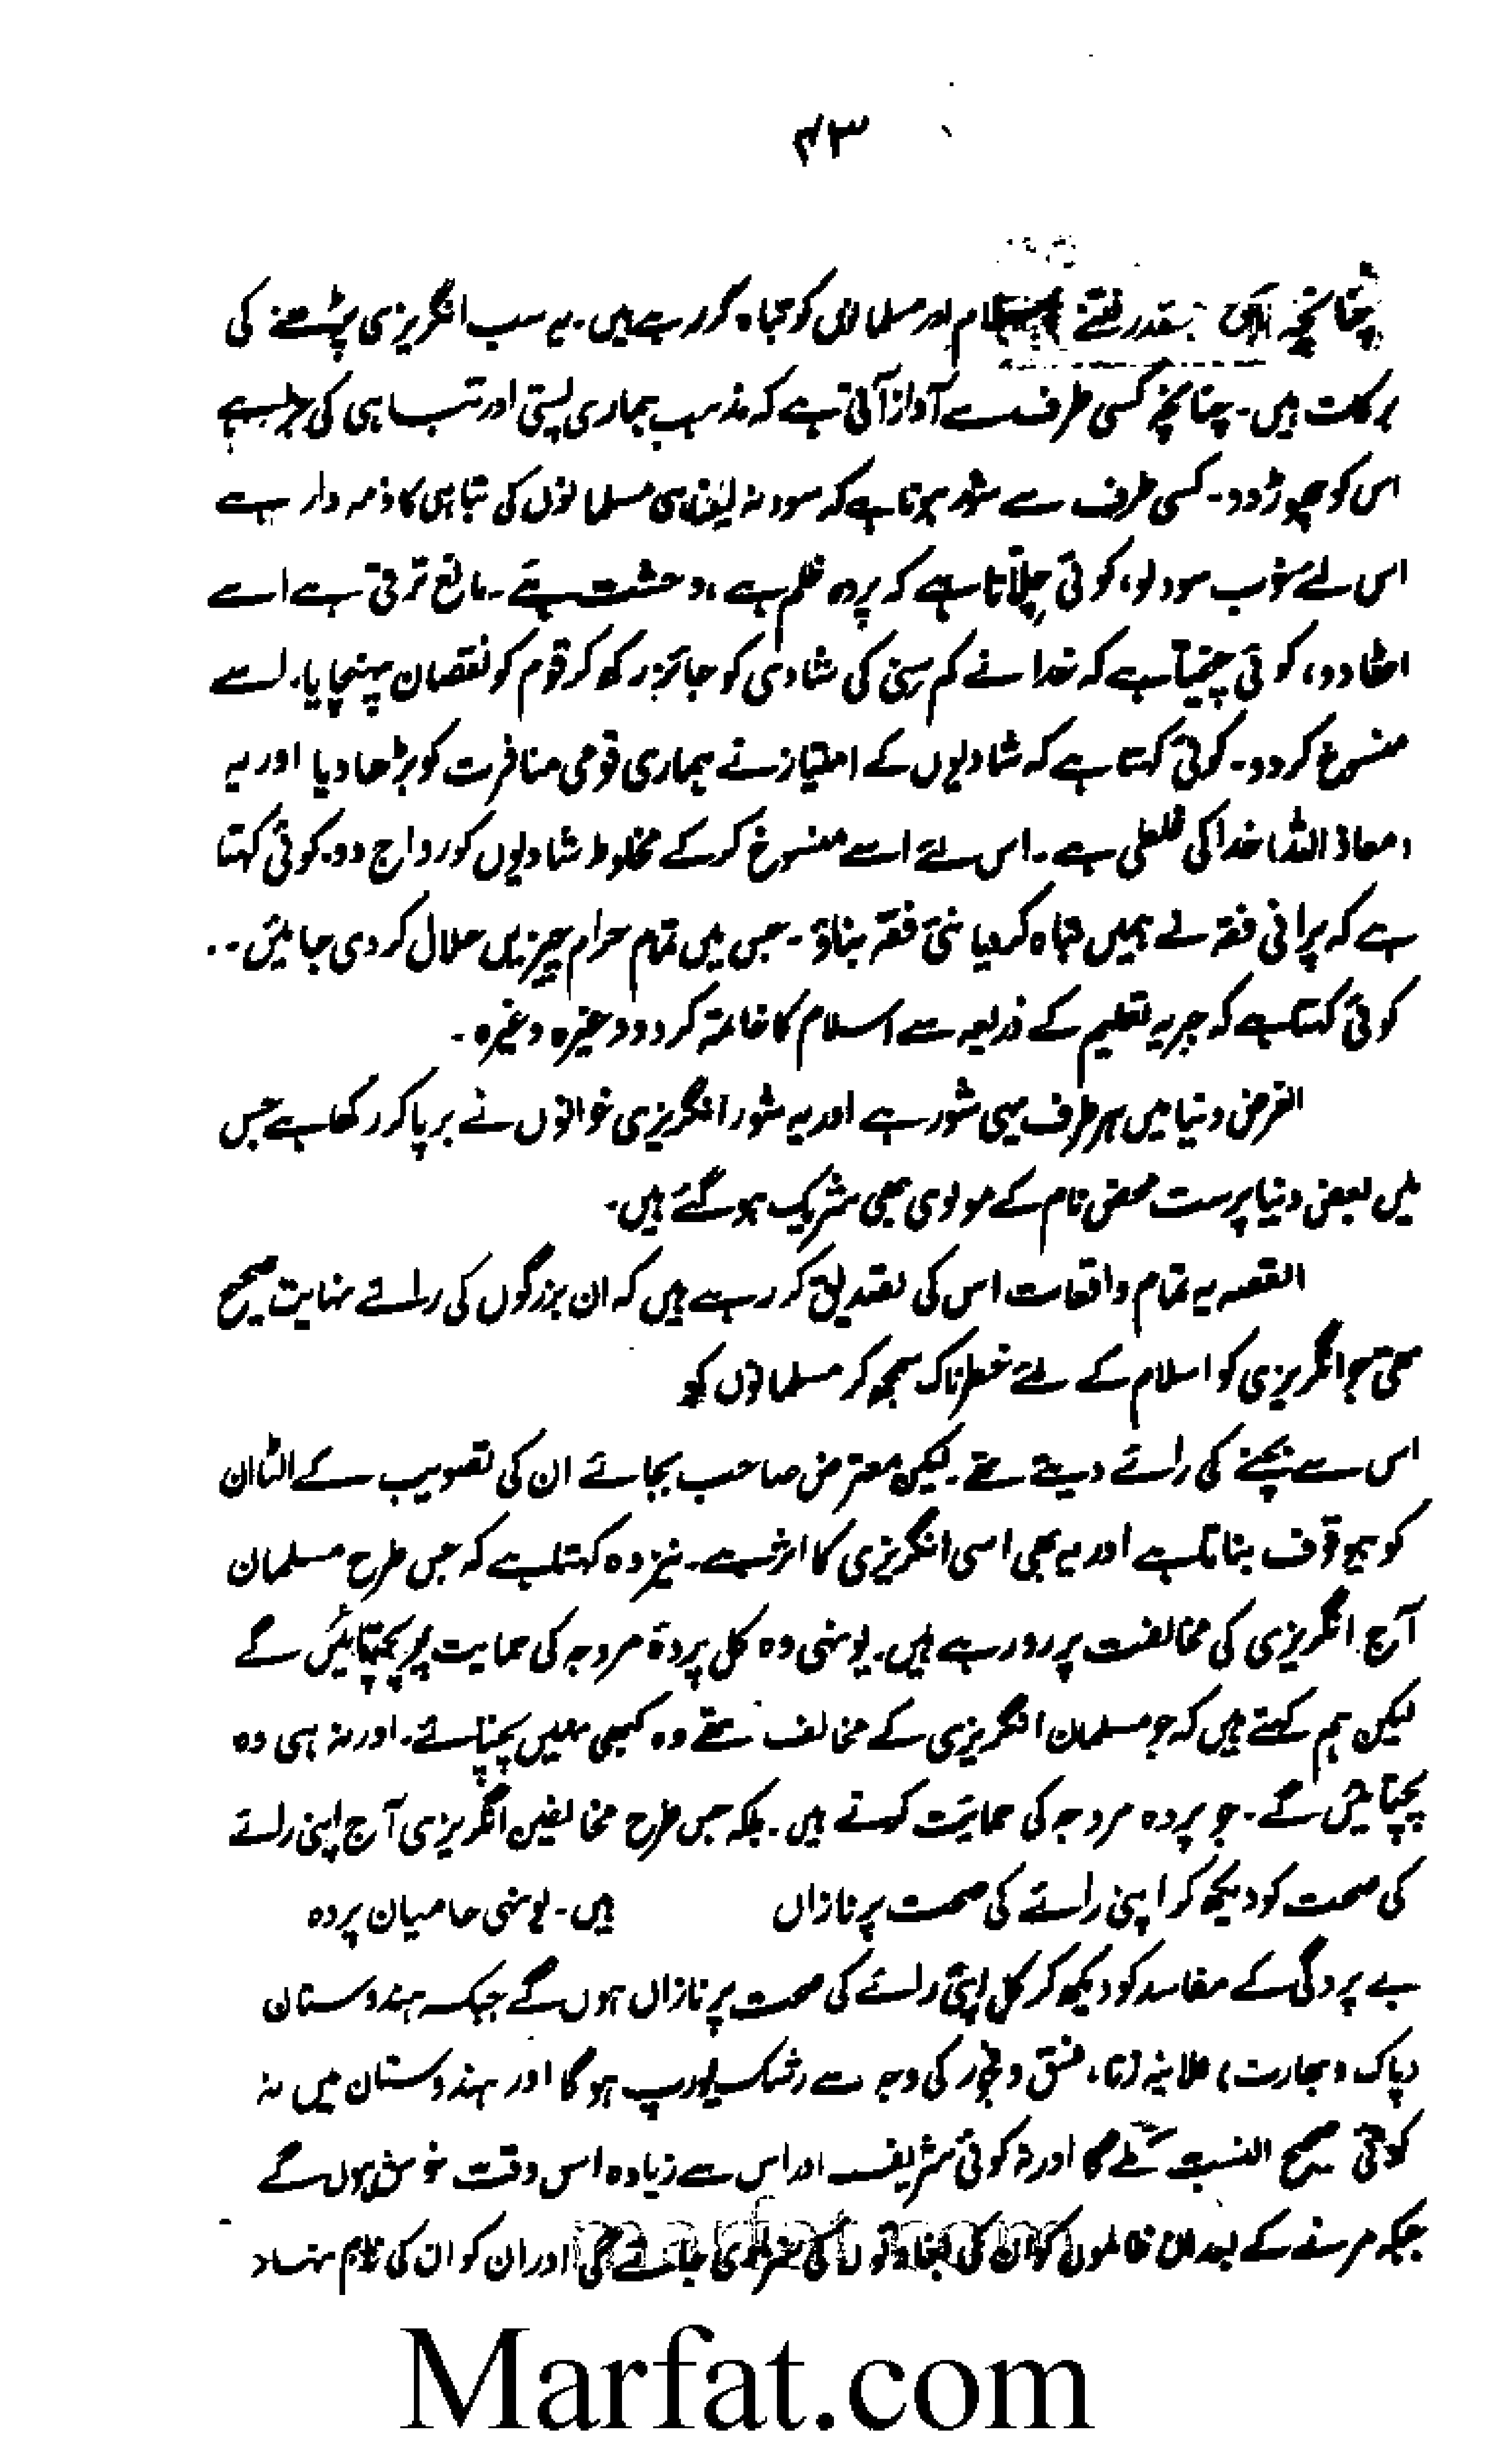 ۴۳
چنانچہ جس قدر فتنے اسلام اور مسلمانوں کو تباہ کر رہے ہیں۔ یہ سب انگریزی پڑھنے کی
برکات ہیں۔ چنانچہ کسی طرف سے آواز آتی ہے کہ مذہب ہماری پستی اور تباہی کی جڑ ہے
اس کو چھوڑ دو۔ کسی طرف سے شور ہوتا ہے کہ سود نہ لینا ہی مسلمانوں کی تباہی کا ذمہ دار ہے
اس لئے خوب سود لو، کوئی چلاتا ہے کہ پردہ ظلم ہے، وحشت ہے۔ مانع ترقی ہے اسے
اٹھا دو، کوئی چیختا ہے کہ خدا نے کم سنی کی شادی کو جائز رکھ کر قوم کو نقصان پہنچایا۔ اسے
منسوخ کر دو۔ کوئی کہتا ہے کہ شادیوں کے امتیاز نے ہماری قومی منافرت کو بڑھا دیا اور یہ
(معاذ اللہ) خدا کی غلطی ہے۔ اس لئے اسے منسوخ کر کے مخلوط شادیوں کو رواج دو۔ کوئی کہتا
ہے کہ پرانی فقہ نے ہمیں تباہ کر دیا نئی فقہ بناؤ۔ جس میں تمام حرام چیزیں حلال کر دی جائیں۔
کوئی کہتا ہے کہ جبریہ تعلیم کے ذریعہ سے اسلام کا خاتمہ کر دو وغیرہ وغیرہ۔
الغرض دنیا میں ہر طرف یہی شور ہے اور یہ شور انگریزی خوانوں نے برپا کر رکھا ہے جس
میں بعض دنیا پرست محض نام کے مولوی بھی شریک ہو گئے ہیں۔
القصہ یہ تمام واقعات اس کی تصدیق کر رہے ہیں کہ ان بزرگوں کی رائے نہایت صحیح
تھی جو انگریزی کو اسلام کے لئے خطرناک سمجھ کر مسلمانوں کو
اس سے بچنے کی رائے دیتے تھے۔ لیکن معترض صاحب بجائے ان کی تصویب کے الٹا ان
کو بیوقوف بناتا ہے اور یہ بھی اسی انگریزی کا اثر ہے۔ نیز وہ کہتا ہے کہ جس طرح مسلمان
آج انگریزی کی مخالفت پر رو رہے ہیں۔ یونہی وہ کل پردۂ مروجہ کی حمایت پر پچھتائیں گے
لیکن ہم کہتے ہیں کہ جو مسلمان انگریزی کے مخالف تھے وہ کبھی نہیں پچھتائے۔ اور نہ ہی وہ
پچھتائیں گے۔ جو پردہ مروجہ کی حمایت کرتے ہیں۔ بلکہ جس طرح مخالفین انگریزی آج اپنی رائے
کی صحت کو دیکھ کر اپنی رائے کی صحت پر نازاں ہیں۔ یونہی حامیان پردہ
بے پردگی کے مفاسد کو دیکھ کر کل اپنی رائے کی صحت پر نازاں ہوں گے جبکہ ہندوستان
(پاک و بھارت) علانیہ زنا، فسق و فجور کی وجہ سے رشک یورپ ہوگا اور ہندوستان میں نہ
کوئی صحیح النسب ملے گا اور نہ کوئی شریف اور اس سے زیادہ اس وقت خوش ہوں گے
جبکہ مرنے کے بعد ان کو ان کی دی جائے گی اور ان کو ان کی نام نہاد
Marfat.com